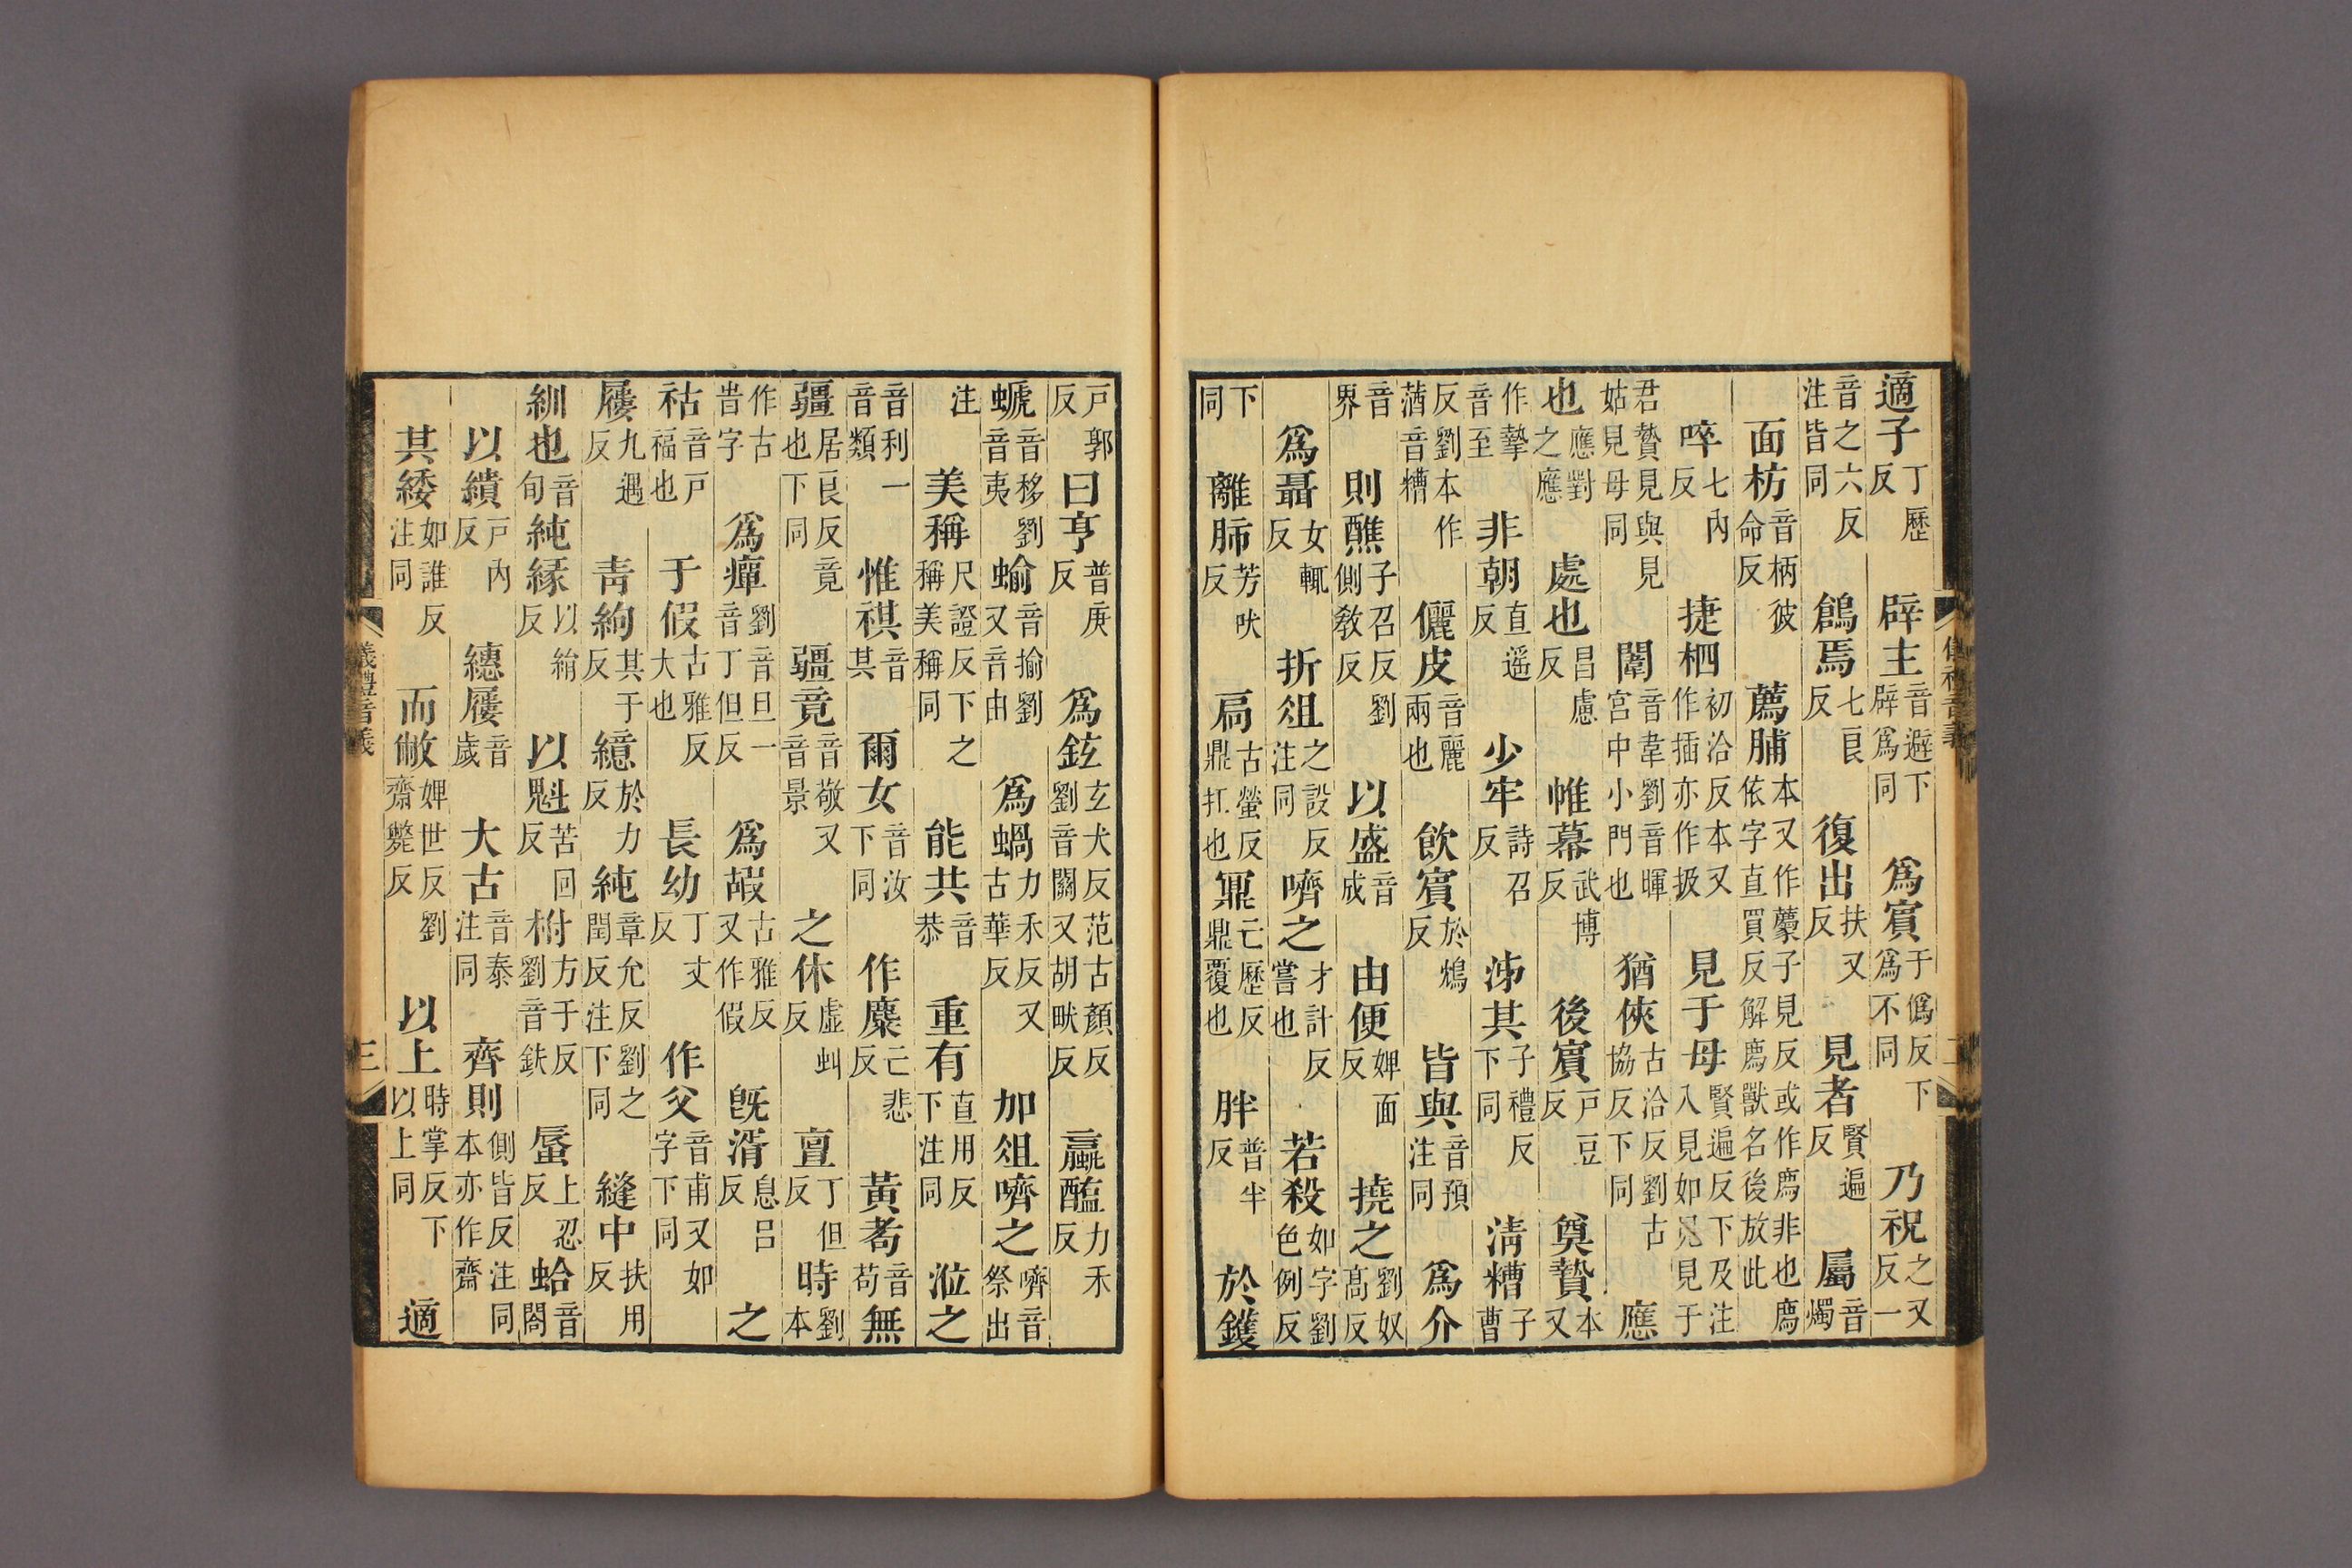 適子丁歷反 辟主音避下辟爲同 爲賓于僞反下爲不同 乃祝之又反一
音之六反注皆同 鶬焉七良反 復出扶又反 見者賢遍反 屬音燭
面枋音柄彼命反 薦脯本又作䕭子見反或作廌非也廌依字直買反解廌獸名後放此
啐七內反 捷柶初洽反本又作插亦作扱 見于母賢遍反下及注入見如見見于
君贄見與見姑見母同 闈音韋劉音暉宮中小門也 猶俠古洽反劉古協反下同 應
也應對之應 處也昌慮反 帷幕武博反 後賓戶豆反 奠贄本又
作摯音至 非朝直遥反 少牢詩召反 泲其子禮反下同 清糟子曹
反劉本作音糟 儷皮音麗兩也 飲賓於鴆反 皆與音預注同 爲介
音界 則醮子召反劉側敎反 以盛音成 由便婢面反 撓之劉奴高反
爲聶女輒反 折俎之設反注同 嚌之才計反嘗也 若殺如字劉色例反
下同 離肺芳吠反 扃古螢反鼎扛也 鼏亡歷反鼎覆也 胖普半反 於鑊
儀禮音義 二
戶郭反 曰亨普庚反 爲鉉玄犬反范古顏反劉音關又胡畎反 蠃醢力禾反
螔音移劉音夷 蝓音揄劉又音由 爲蝸力禾反又古華反 加俎嚌之嚌音祭出
注 美稱尺證反下之稱美稱同 能共音恭 重有直用反下注同 涖之
音利一音類 惟祺音其 爾女音汝下同 作麋亡悲反 黃耇音苟 無
疆居良反竟也下同 疆竟音敬又音景 之休虛虯反 亶丁但反 時劉本
作古旹字 爲癉劉音旦一音丁但反 爲嘏古雅反又作假 旣湑息呂反 之
祜音戶福也 于假古雅反大也 長幼丁丈反 作父音甫又如字下同
屨九遇反 青絇其于反 繶於力反 純章允反劉之閏反注下同 縫中扶用反
紃也音旬 純緣以絹反 以魁苦回反 柎方于反劉音鈇 蜃上忍反 蛤音閤
以繢戶內反 繐屨音歲 大古音泰注同 齊則側皆反注同本亦作齋
其緌如誰反注同 而敝婢世反劉齋斃反 以上時掌反下以上同 適
儀禮音義 三